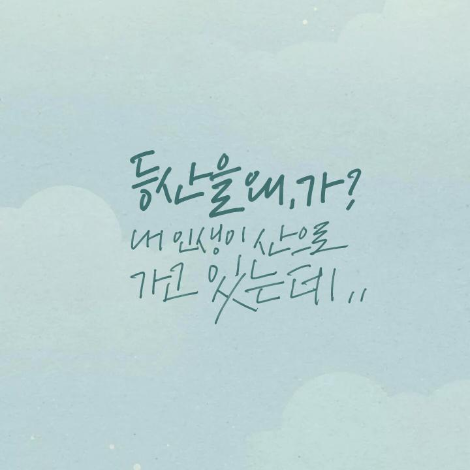 등산을 왜, 가?
내 인생이 산으로
가고 있는데,,